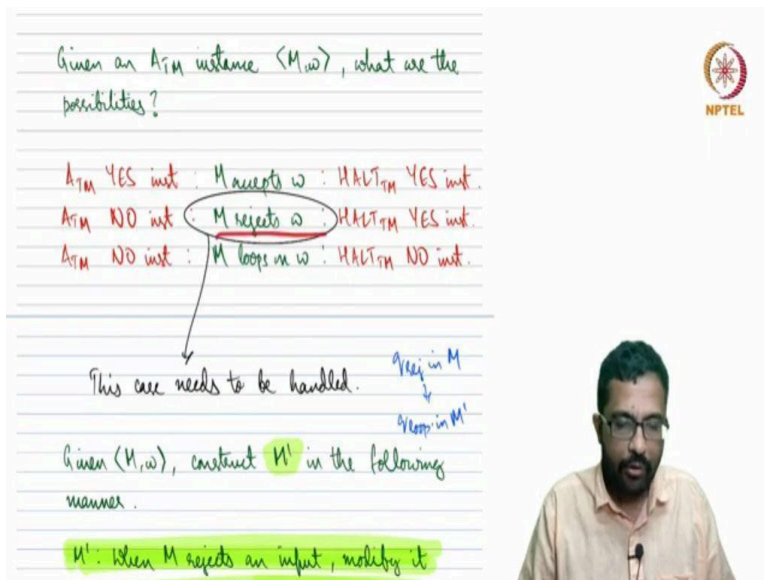 Given an A_TM instance ⟨M,w⟩, what are the
possibilities?
NPTEL
A_TM YES inst : M accepts w : HALT_TM YES inst.
A_TM NO inst : M rejects w : HALT_TM YES inst.
A_TM NO inst : M loops on w : HALT_TM NO inst.
This case needs to be handled.
q_rej in M
↓
q_loop in M'
Given ⟨M,w⟩, construct M' in the following
manner.
M': When M rejects an input, modify it